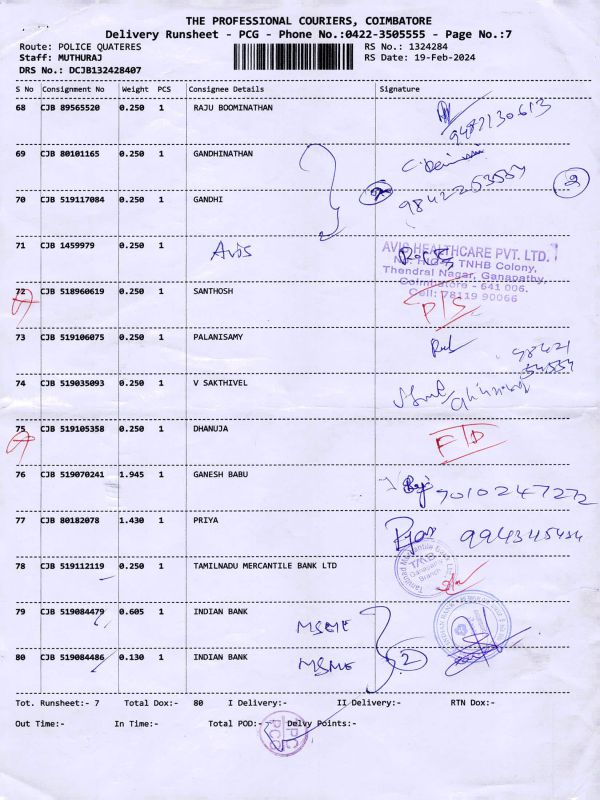 THE PROFESSIONAL COURIERS, COIMBATORE
Delivery Runsheet - PCG - Phone No.:0422-3505555 - Page No.:7
Route: POLICE QUATERES RS No.: 1324284
Staff: MUTHURAJ RS Date: 19-Feb-2024
DRS No.: DCJB132428407
S No Consignment No Weight PCS Consignee Details Signature
68 CJB 89565520 0.250 1 RAJU BOOMINATHAN
9487130613
69 CJB 80101165 0.250 1 GANDHINATHAN
2 2
70 CJB 519117084 0.250 1 GANDHI
71 CJB 1459979 0.250 1 Avis
AVIS HEALTHCARE PVT. LTD.
TNHB Colony,
Thendral Nagar, Ganapathy,
Coimbatore - 641 006.
Cell: 78119 90066
72 CJB 518960619 0.250 1 SANTHOSH P/S
73 CJB 519106075 0.250 1 PALANISAMY
98421
74 CJB 519035093 0.250 1 V SAKTHIVEL
75 CJB 519105358 0.250 1 DHANUJA F/D
76 CJB 519070241 1.945 1 GANESH BABU 9010247272
77 CJB 80182078 1.430 1 PRIYA
78 CJB 519112119 0.250 1 TAMILNADU MERCANTILE BANK LTD
Tamilnad Mercantile Bank Ltd
Ganapathy
Branch
79 CJB 519084479 0.605 1 INDIAN BANK MSME
80 CJB 519084486 0.130 1 INDIAN BANK MSME 2
INDIAN BANK
Tot. Runsheet:- 7 Total Dox:- 80 I Delivery:- II Delivery:- RTN Dox:-
Out Time:- In Time:- Total POD:- Delvy Points:-
PCG